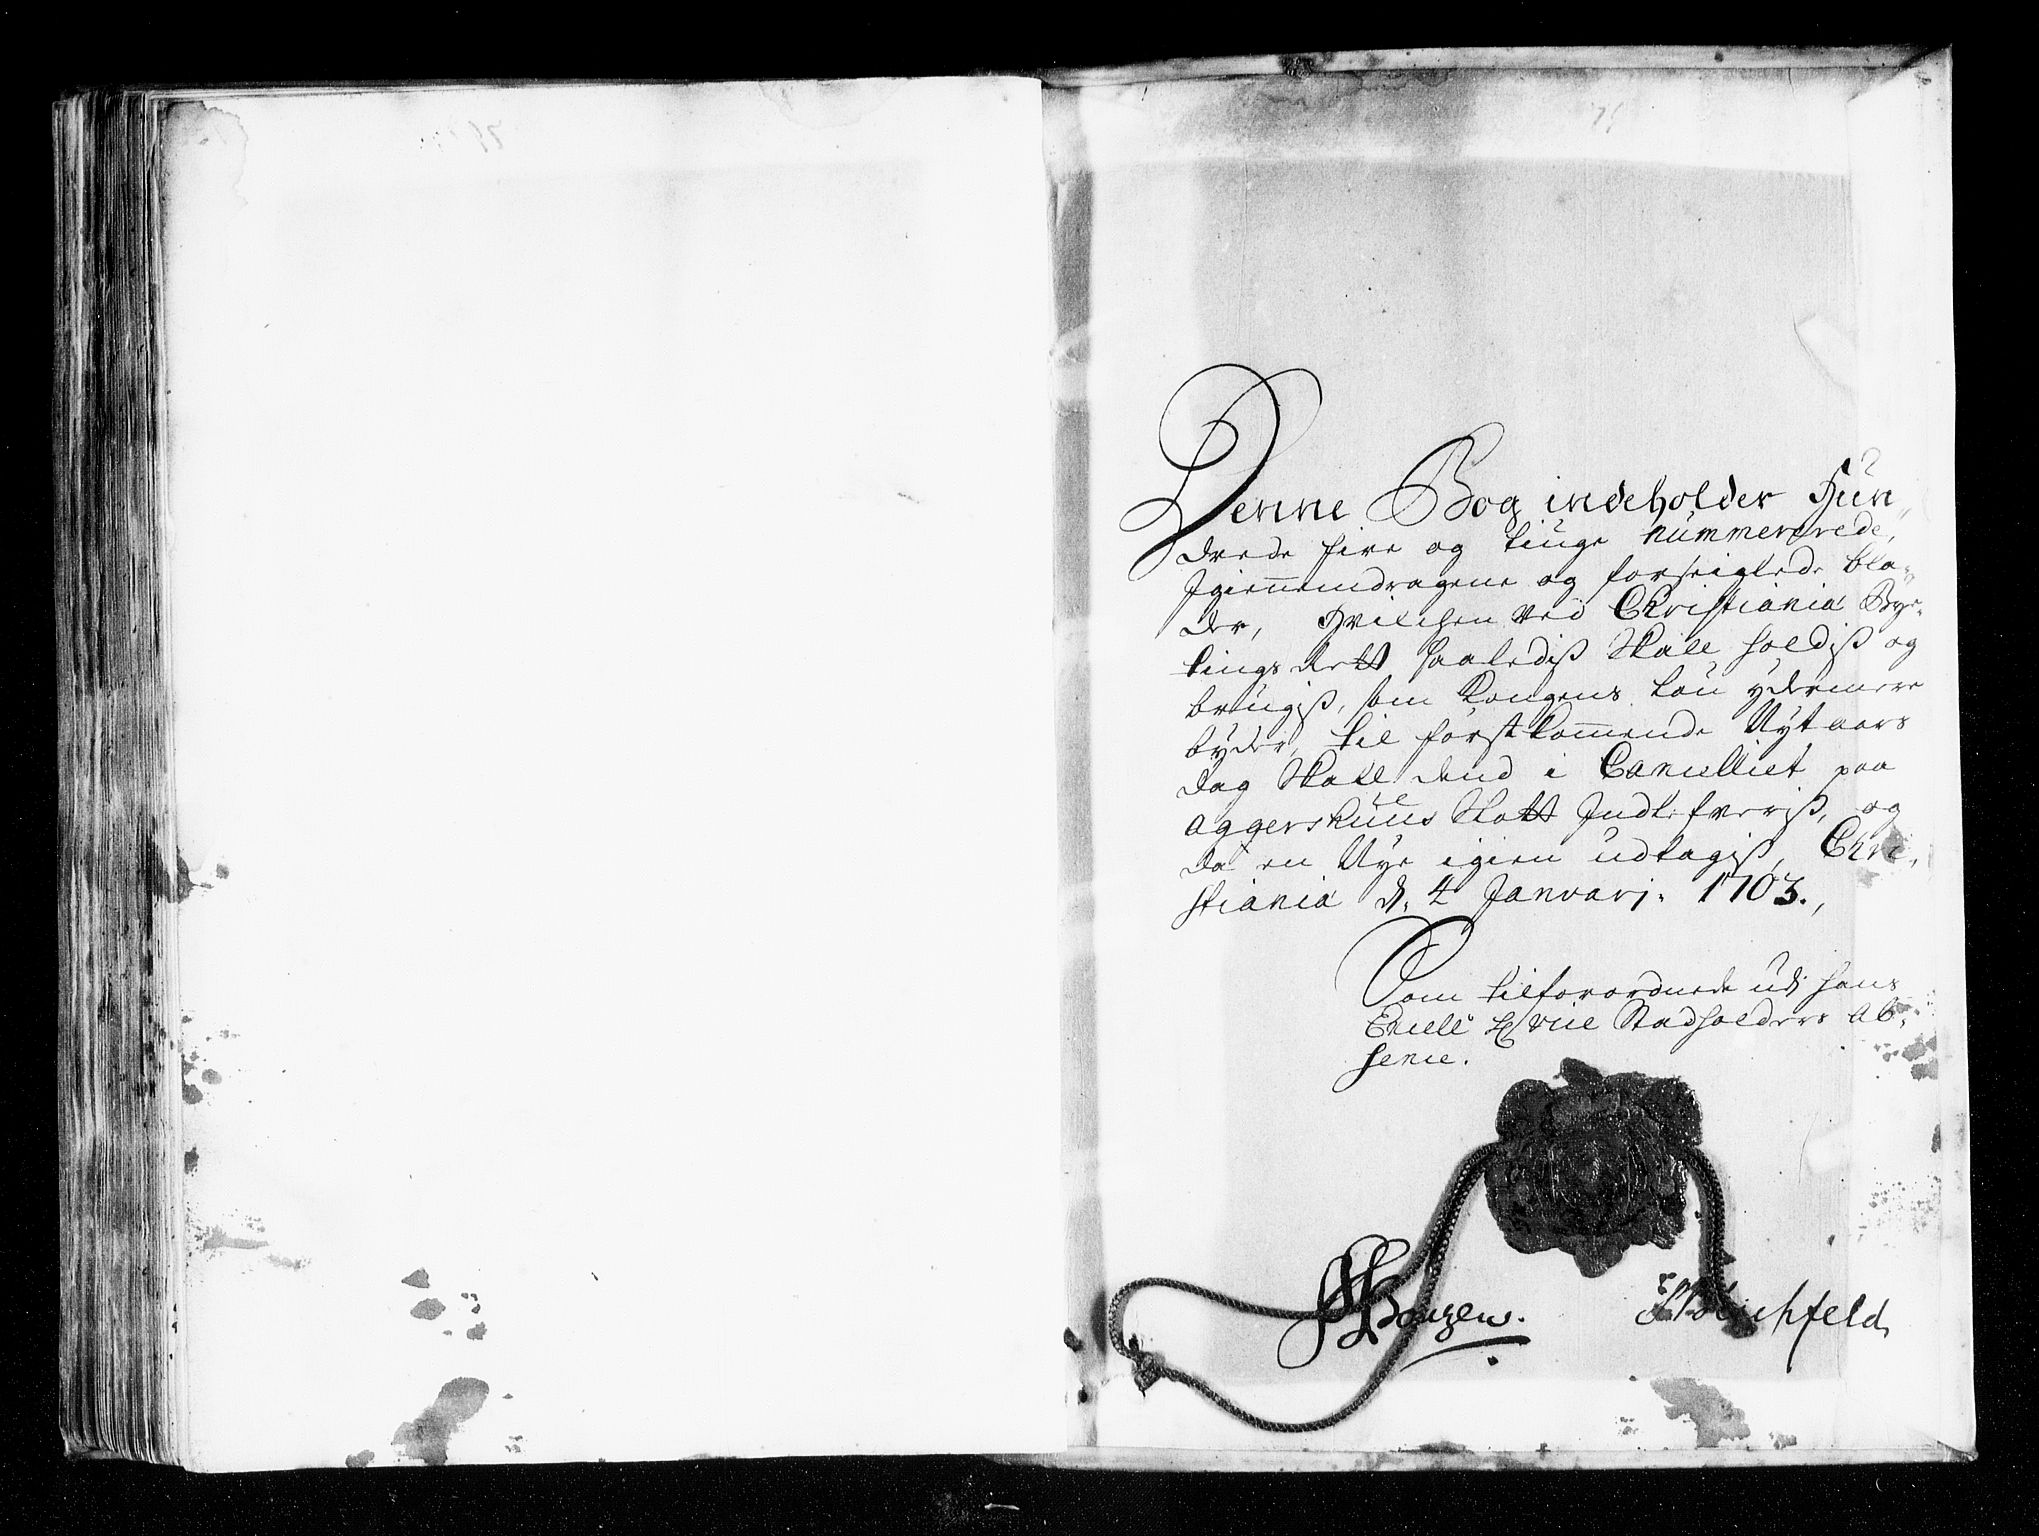 Denne Bog indeholder Hun„
drede fire og tiuge nummererede,
Igiennemdragene og forseiglede bla„
der, Hvilchen ved Christiania Bye„
tings Rett saaledis skall holdis og
brugis, som Kongens Lou ydermere
byder, til førstkommende Nytaars
dag skall dend i Cancelliet paa
Aggershuus Slott Indlefveris, og
da en Nye igien udtagis, Chri„
stiania d. 4 Januarj. 1703.,
Som tilforordnede udj hans
Excell: Hr Vice Stadholders Ab„
sence.